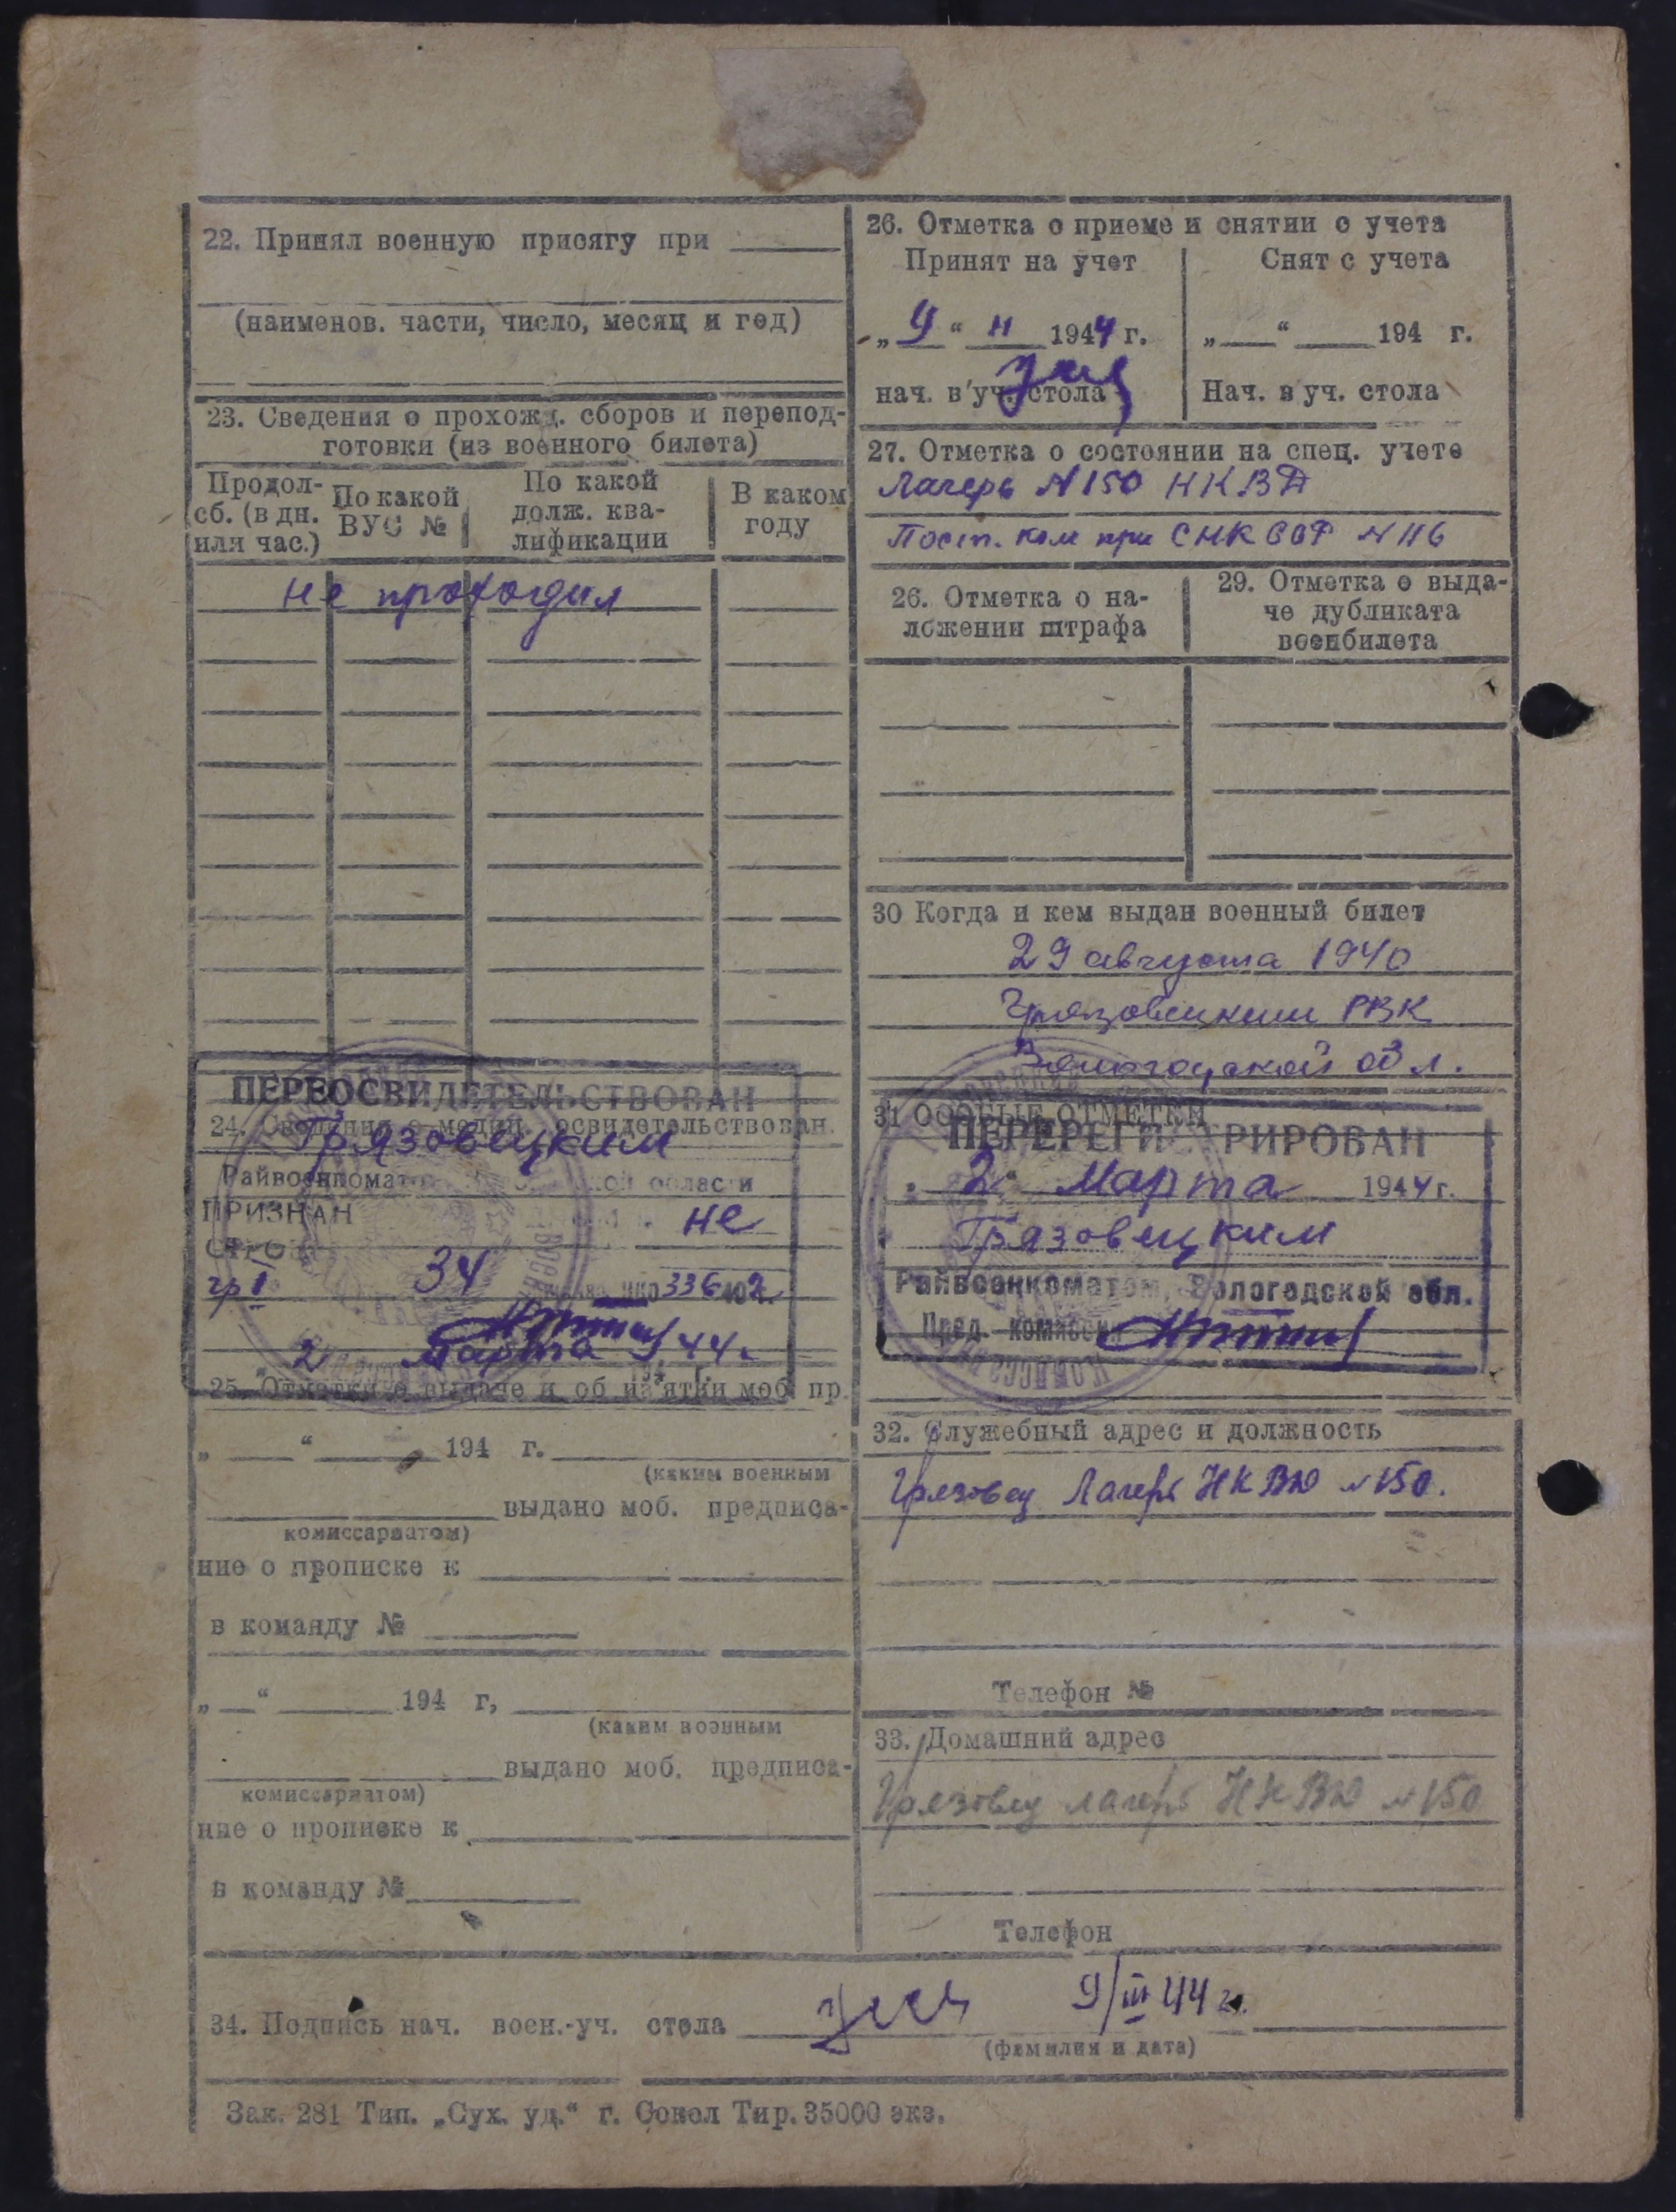 22. Принял военную присягу при
(наименов. части, число, месяц и год)
23. Сведения о прохожд. сборов и перепод-
готовки (из военного билета)
Продол-
сб. (в дн.
или час.)
По какой
ВУС №
По какой
долж. ква-
лификации
В каком
году
не проходил
ПЕРЕОСВИДЕТЕЛЬСТВОВАН
24. Сведения о медиц. освидетельствован.
Грязовецким
Райвоенкомат области
ПРИЗНАН не
гр I 34 336
2 Марта 44 г.
25. Отметки о выдаче и об из'ятии моб. пр.
„ “ 194 г.
(каким военным
выдано моб. предписа-
комиссариатом)
ние о прописке к
в команду №
„ “ 194 г,
(каким военным
выдано моб. предписа-
комиссариатом)
ние о прописке к
в команду №
26. Отметка о приеме и снятии с учета
Принят на учет
Снят с учета
„ 9 “ 1944 г.
„ “ 194 г.
нач. в уч. стола
Нач. в уч. стола
27. Отметка о состоянии на спец. учете
Лагерь N 150 НКВД
Пост. ком при СНК ССР N 116
26. Отметка о на-
ложении штрафа
29. Отметка о выда-
че дубликата
военбилета
30 Когда и кем выдан военный билет
29 августа 1940
Грязовецким РВК
Вологодской обл.
31 ОСОБЫЕ ОТМЕТКИ
ПЕРЕРЕГИСТРИРОВАН
2 Марта 1944 г.
Грязовецким
Райвоенкоматом, Вологодской обл.
Пред. комиссии
32. Служебный адрес и должность
Грязовец Лагерь НКВД N 150.
Телефон №
33. Домашний адрес
Грязовец лагерь НКВД N 150
Телефон
34. Подпись нач. воен.-уч. стола 9/III 44 г.
(фамилия и дата)
Зак. 281 Тип. „Сух. уд.“ г. Сокол Тир. 35000 экз.